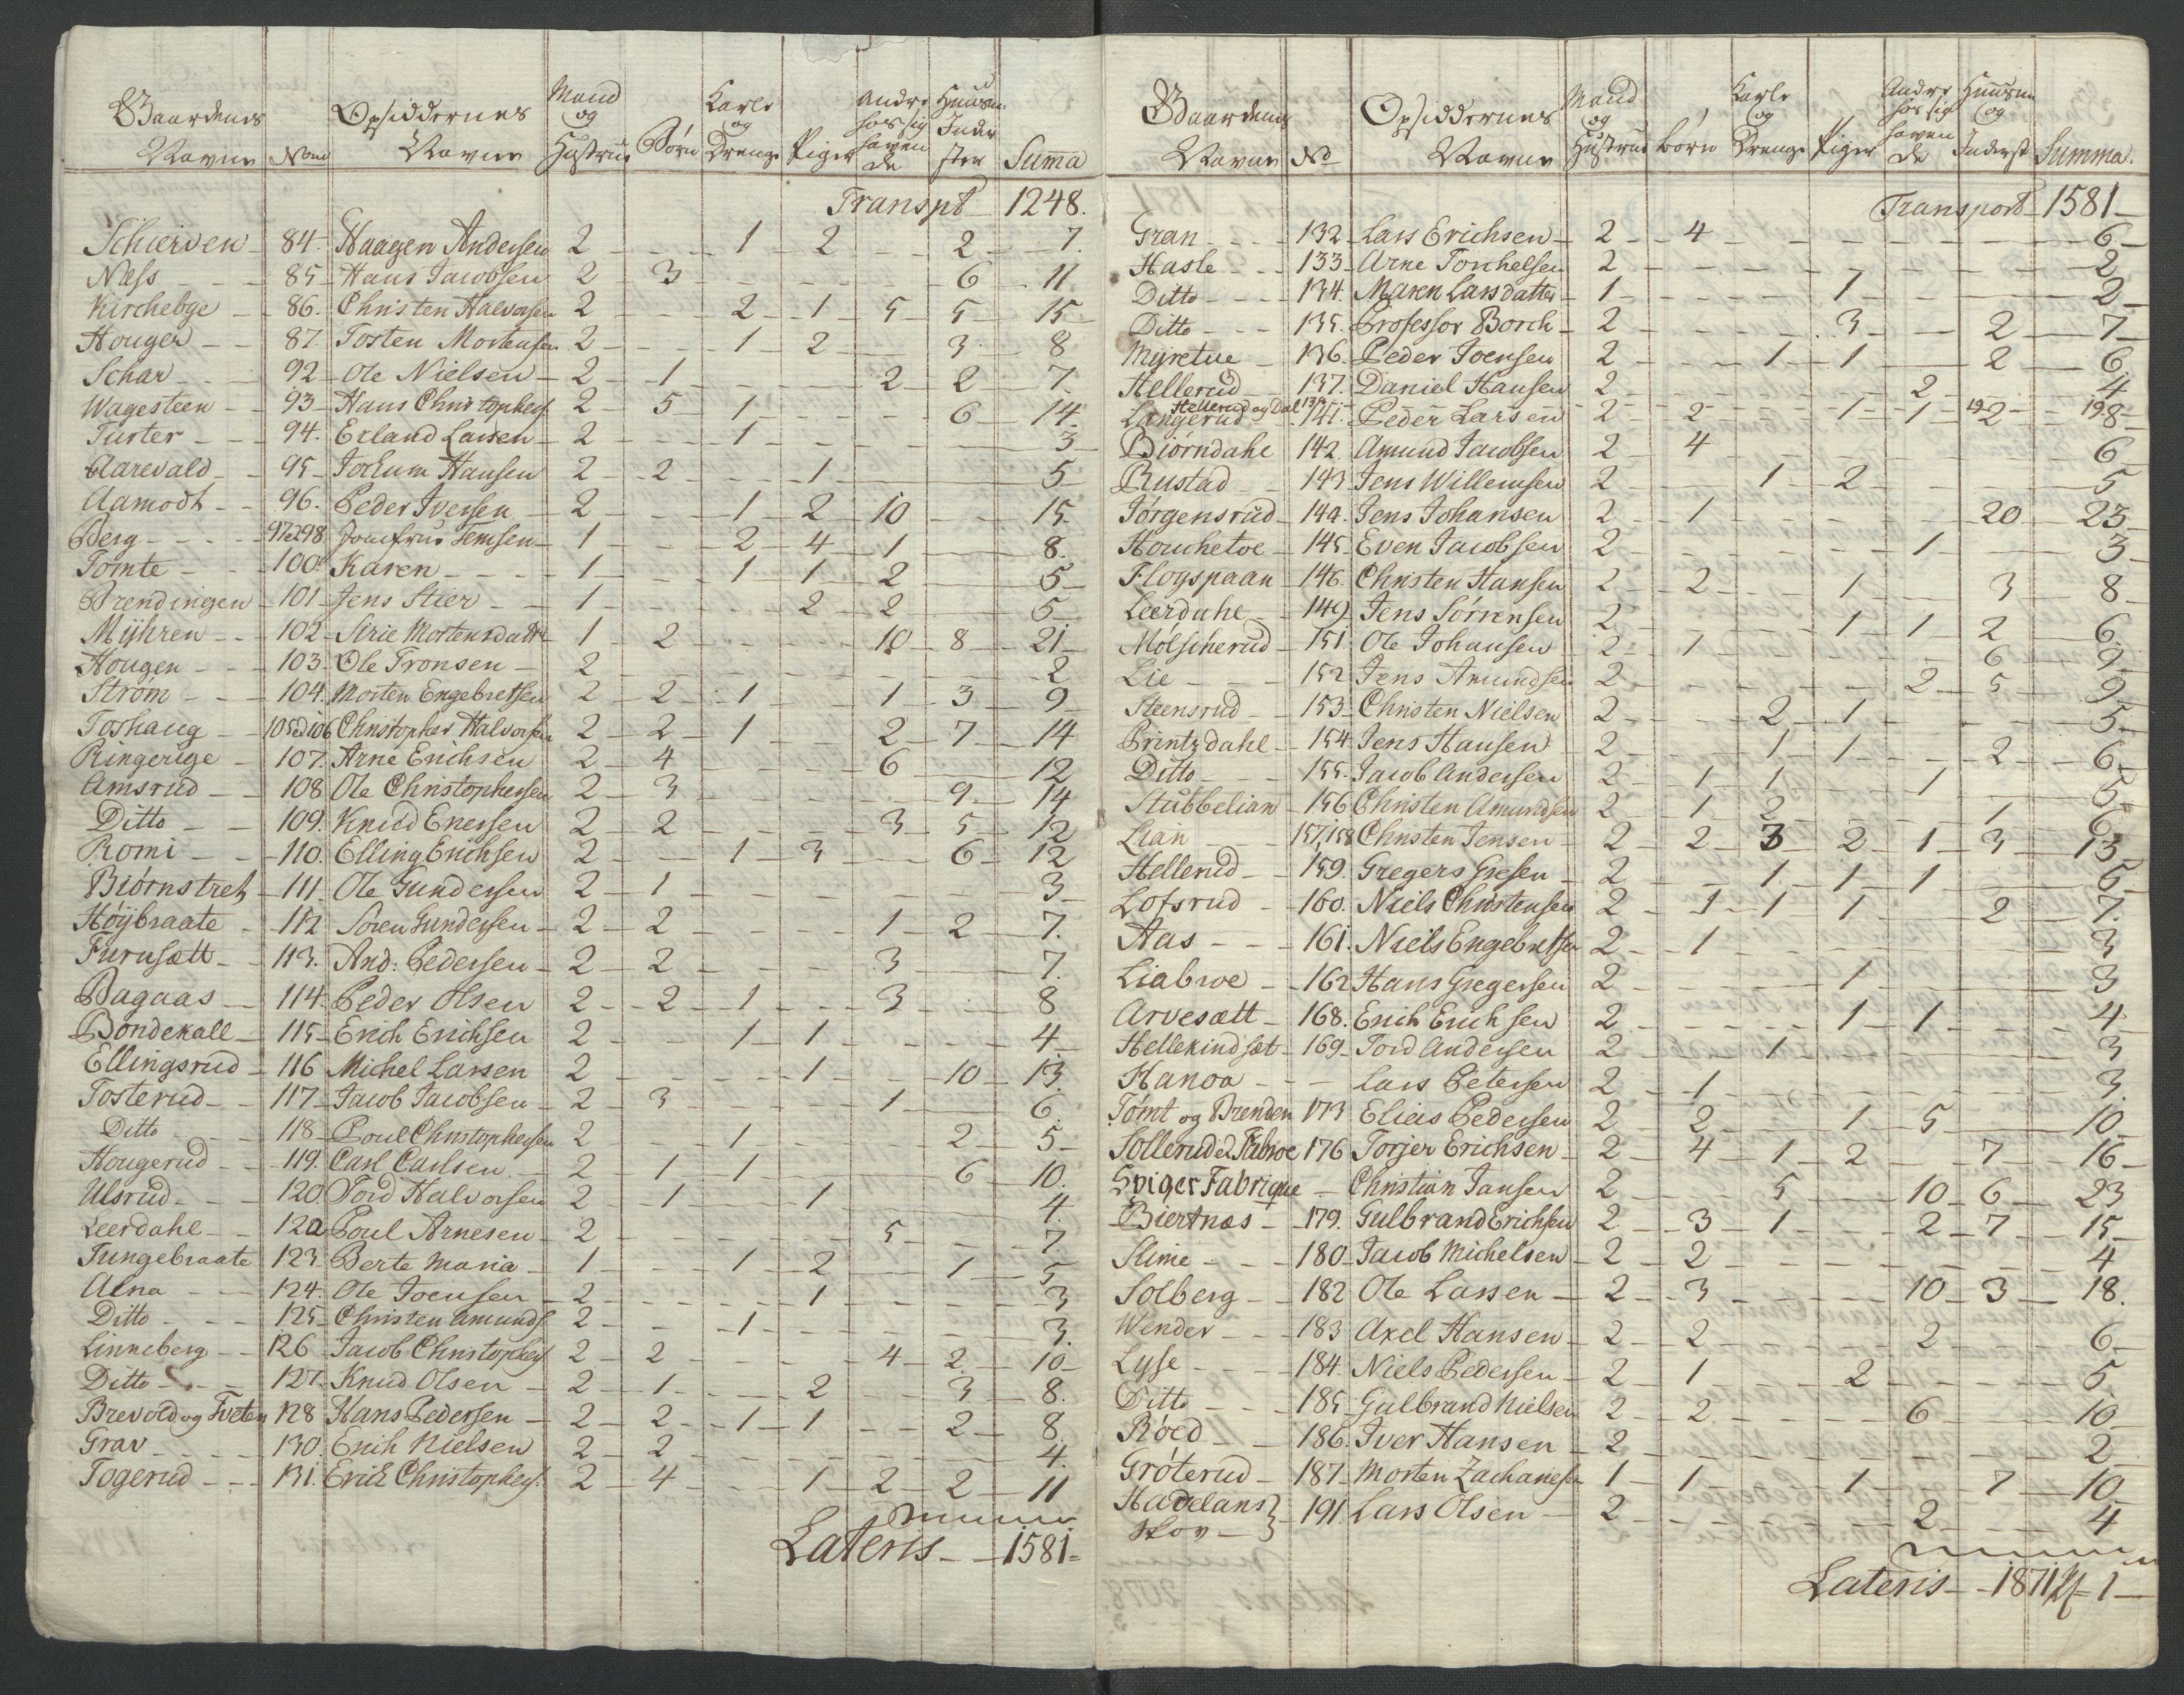 Gaardenes Navne | No | Opsiddernes Navne | Mand og Hustrue | Børn | Karle og Drenge | Piger | Andre hos sig havende | Huusm. Inderster | Summa
Transpt 1248.
Schierven 84 Haagen Andersen 2 1 2 2 7.
Næss 85 Hans Jacobsen 2 3 6 11
Kirchebye 86. Christen Halvorsen 2 2 1 5 5 15
Houger 87 Tosten Mortensen 2 1 2 3 8
Schar 92 Ole Nielsen 2 1 2 2 7
Wagesteen 93 Hans Christophers. 2 5 1 6 14
Turter 94. Erland Larsen 2 1 3
Aarevald 95 Jockum Hansen 2 2 1 5
Aamodt 96. Peder Iversen 2 1 2 10 15
Berg 97 et 98 Jomfrue Temsen 1 2 4 1 8.
Tomte 100 Karen 1 1 1 2 5
Brendingen 101 Jens Stier 1 2 2 5
Mÿhren 102 Sirie Mortensdatt 1 2 10 8 21
Hougen 103 Ole Tronsen 2 2
Strøm 104. Morten Engebretsen 2 2 1 1 3 9
Toshaug 105 et 106 Christopher Halvorsen 2 2 1 2 7 14
Ringerige 107 Arne Erichsen 2 4 6 12
Amsrud 108 Ole Christophersen 2 3 9 14
Ditto 109. Knud Enersen 2 2 3 5 12
Romi 110. Elling Erichsen 2 1 3 6 12
Biørnstreh 111 Ole Gundersen 2 1 3
Høÿbraate 112 Søren Gundersen 2 2 1 2 7.
Furusætt 113. And: Pedersen 2 2 3 7.
Bagaas 114 Peder Olsen 2 2 1 3 8
Bondekall 115 Erich Erichsen 2 1 1 4
Ellingsrud 116 Michel Larsen 2 1 10 13
Tosterud 117 Jacob Jacobsen 2 3 1 6.
Ditto 118 Poul Christophersen 2 1 2 5
Hougerud 119. Carl Carlsen 2 1 1 6 10.
Ulsrud 120 Tord Halvorsen 2 1 1 4
Leerdahl 122 Poul Arnesen 2 5 7.
Tungebraate 123 Berte Maria 1 1 2 1 5
Alna 124. Ole Joensen 2 1 3
Ditto 125 Christen Amunds. 2 1 3.
Linneberg 126 Jacob Christophers. 2 2 4 2 10
Ditto 127. Knud Olsen 2 1 2 3 8.
Brevold og Tveten 128 Hans Pedersen 2 2 1 1 2 8.
Grav 130. Erich Nielsen 2 2 4.
Togerud 131. Erich Christophers. 2 4 1 2 2 11
Lateris 1581
Gaardenes Navne | No | Opsiddernes Navne | Mand og Hustrue | Børn | Karle og Drenge | Piger | Andre hos sig havende | Huusm og Inderst | Summa.
Transport 1581
Gran 132 Lars Erichsen 2 4 6
Hasle 133 Arne Torchelsen 2 2
Ditto 134. Maren Larsdatter 1 1 2
Ditto 135. Professor Borch 2 3 2 7
Mÿretue 136. Peder Joensen 2 1 1 2 6
Hellerud 137. Daniel Hansen 2 2 4
Hellerud og Dal 138 19 19
Langerud 141. Peder Larsen 2 2 1 1 2 8
Biørndahl 142 Amund Jacobsen 2 4 6
Rustad 143 Jens Willemsen 2 1 2 5
Jørgensrud 144. Jens Johansen 2 1 20 23
Houchetoe 145 Even Jacobsen 2 1 3
Flogspaan 146. Christen Hansen 2 2 1 3 8
Leerdahl 149 Jens Sørrensen 2 1 1 2 6.
Molscherud 151. Ole Johansen 2 1 6 9
Lie 152 Jens Amundsen 2 2 5 9
Steensrud 153 Christen Nielsen 2 2 1 5
Printzdahl 154 Jens Hansen 2 1 1 2 6
Ditto 155. Jacob Andersen 2 1 1 1 5
Stubbelian 156 Christen Amundsen 2 1 2 1 6
Lian 157, 158 Christen Jensen 2 2 3 2 1 3 13
Hellerud 159. Gregers Gresen 2 1 1 1 5
Lofsrud 160. Niels Christensen 2 1 1 1 2 7.
Aas 161. Niels Engebretsen 2 1 3
Liabroe 162 Hans Gregersen 2 1 3
Arvesætt 168. Erich Erichsen 2 1 1 4
Hellekindsæt 169 Tord Andersen 2 1 3
Hanoa Lars Petersen 2 1 3
Tømt og Brenden 173 Elias Pedersen 2 2 1 5 10
Sollerud et Fabroe 176 Torjer Erichsen 2 4 1 2 7 16
Sviger Fabrique Christian Jansen 2 5 10 6 23
Biertnæs 179. Gulbrand Erichsen 2 3 1 2 7 15
Slime 180 Jacob Michelsen 2 2 4
Solberg 182 Ole Larsen 2 3 10 3 18.
Wender 183 Axel Hansen 2 2 2 6
Lyse 184. Niels Pedersen 2 1 2 5
Ditto 185 Gulbrand Nielsen 2 2 6 10
Røed 186. Iver Hansen 2 2
Grøterud 187 Morten Zachariesen 1 1 1 7 10
Hadelans skov 191 Lars Olsen 2 2 4
Lateris 1871